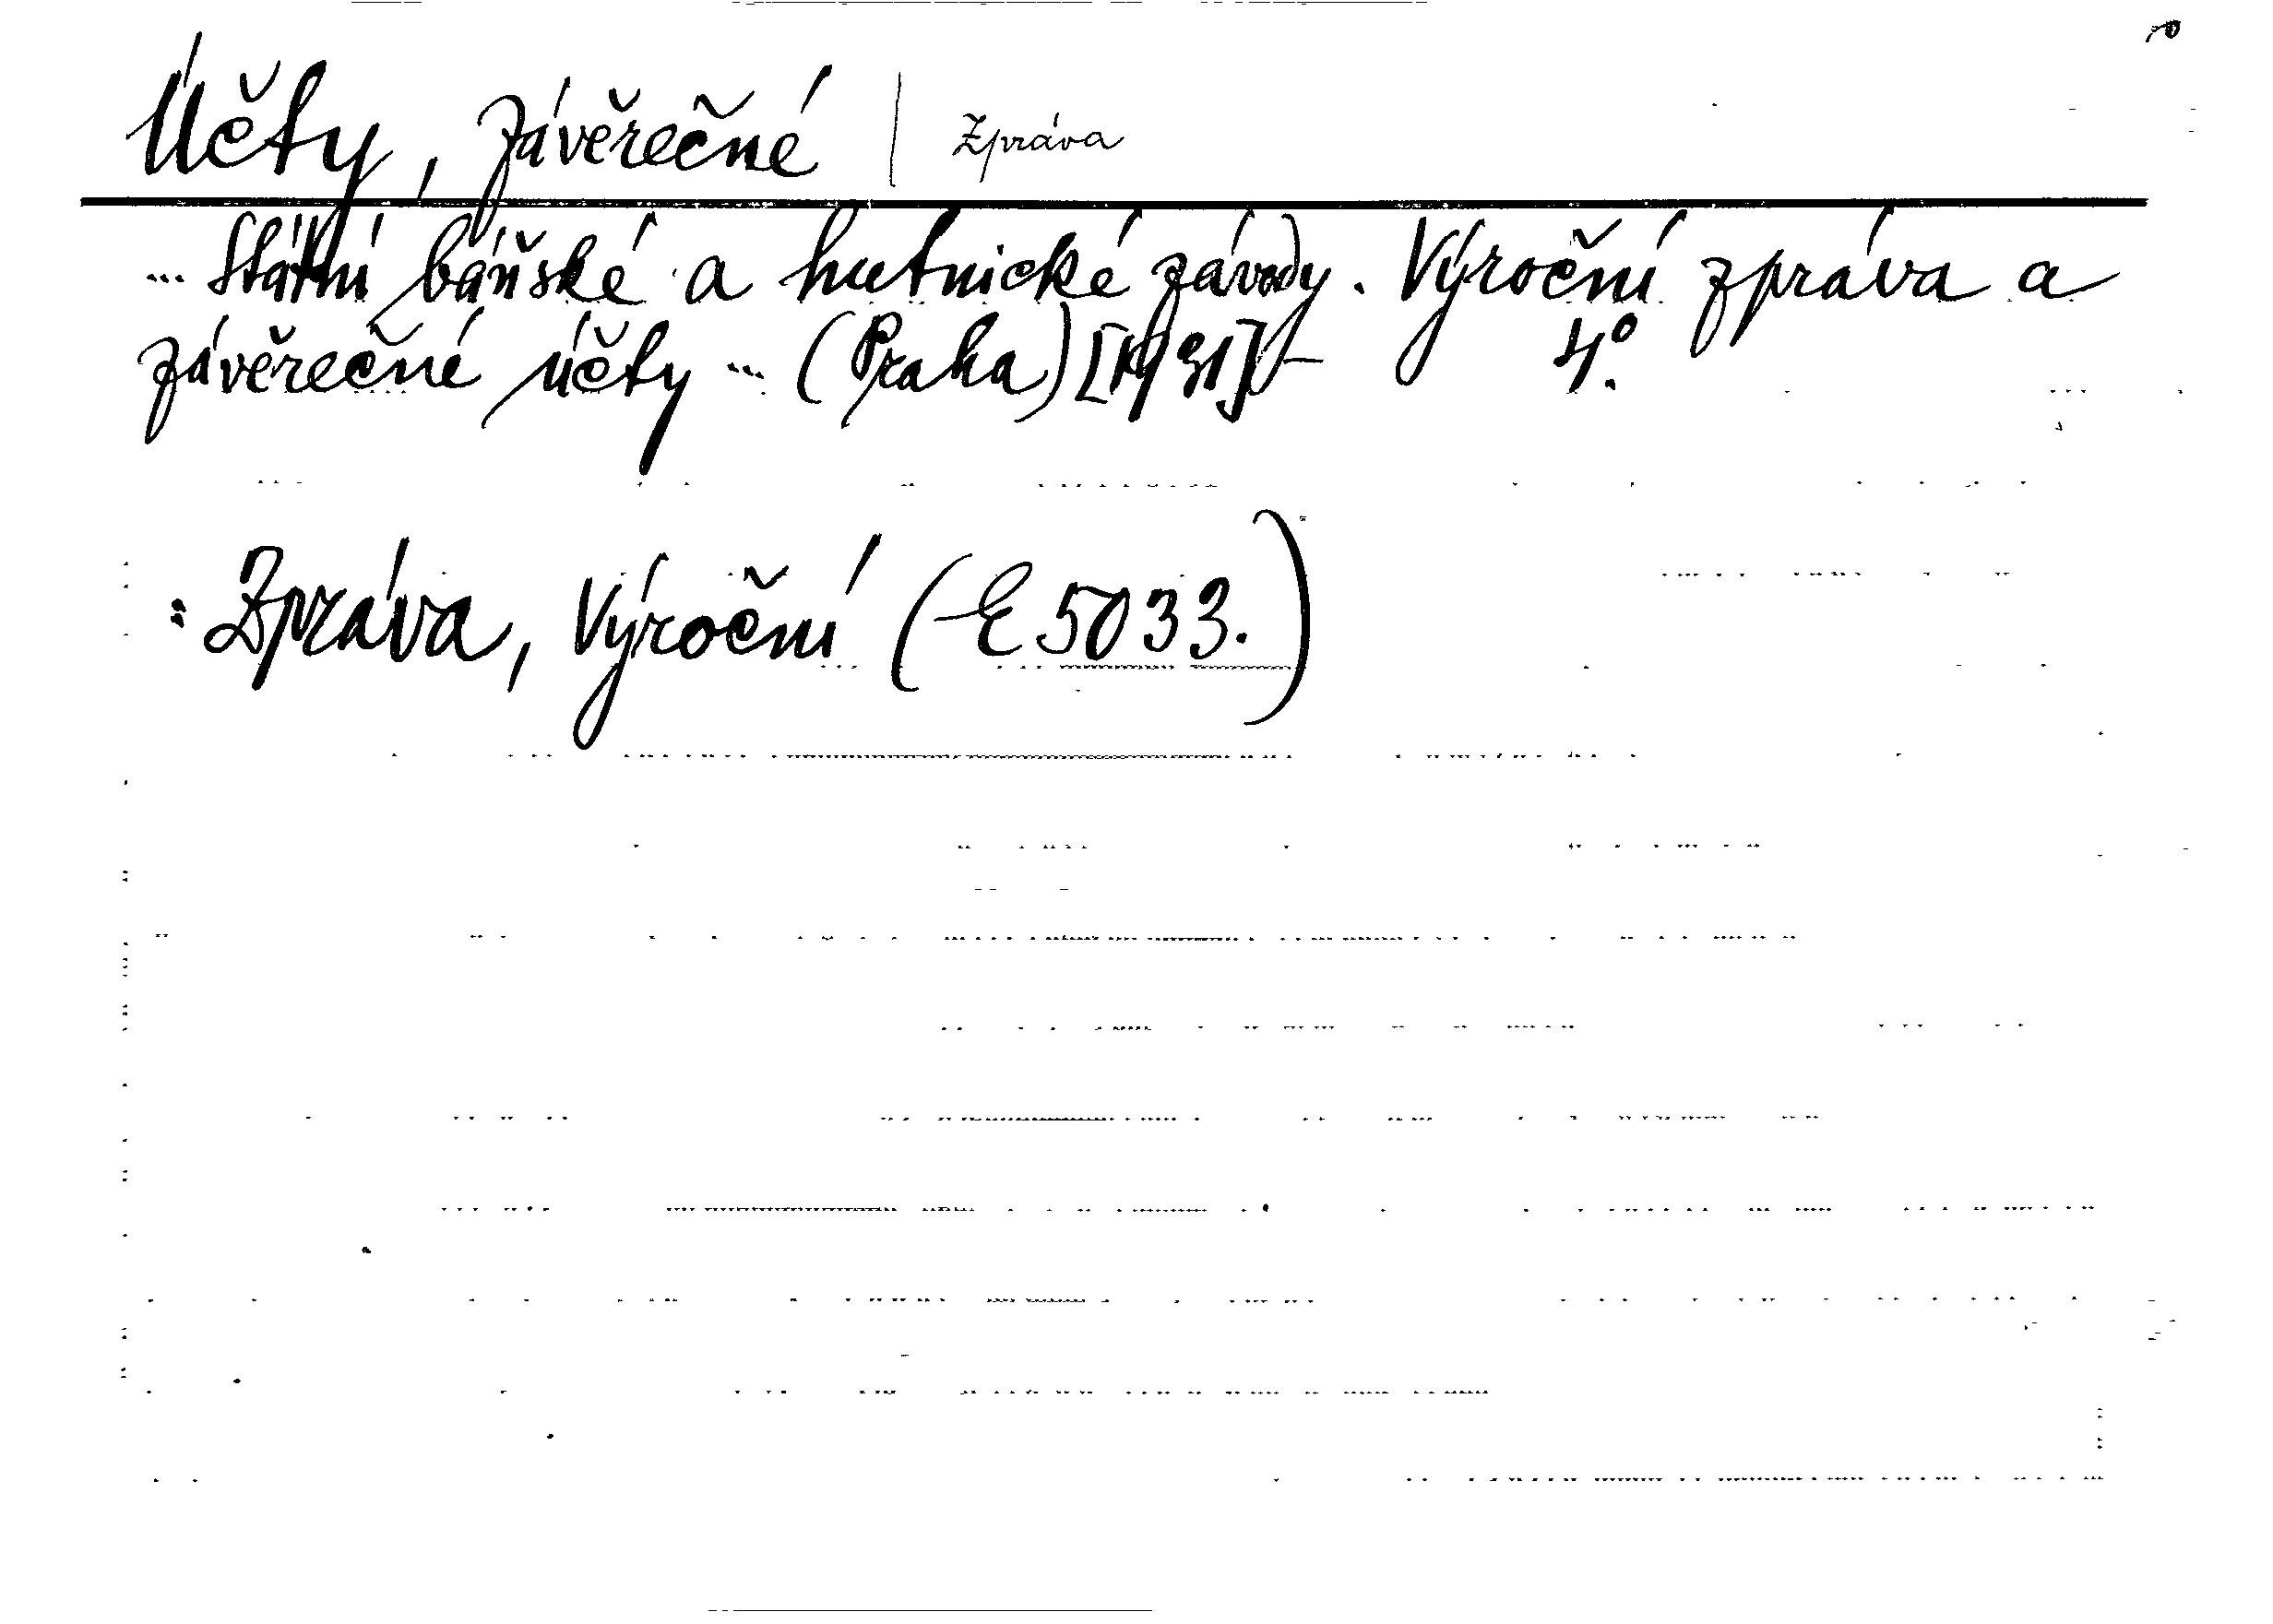 Účty, závěrečné | Zpráva
... Státní báňské a hutnické závody. Výroční zpráva a
závěrečné účty ... (Praha) [1931]- 4°.
: Zpráva, Výroční (E 5033.)